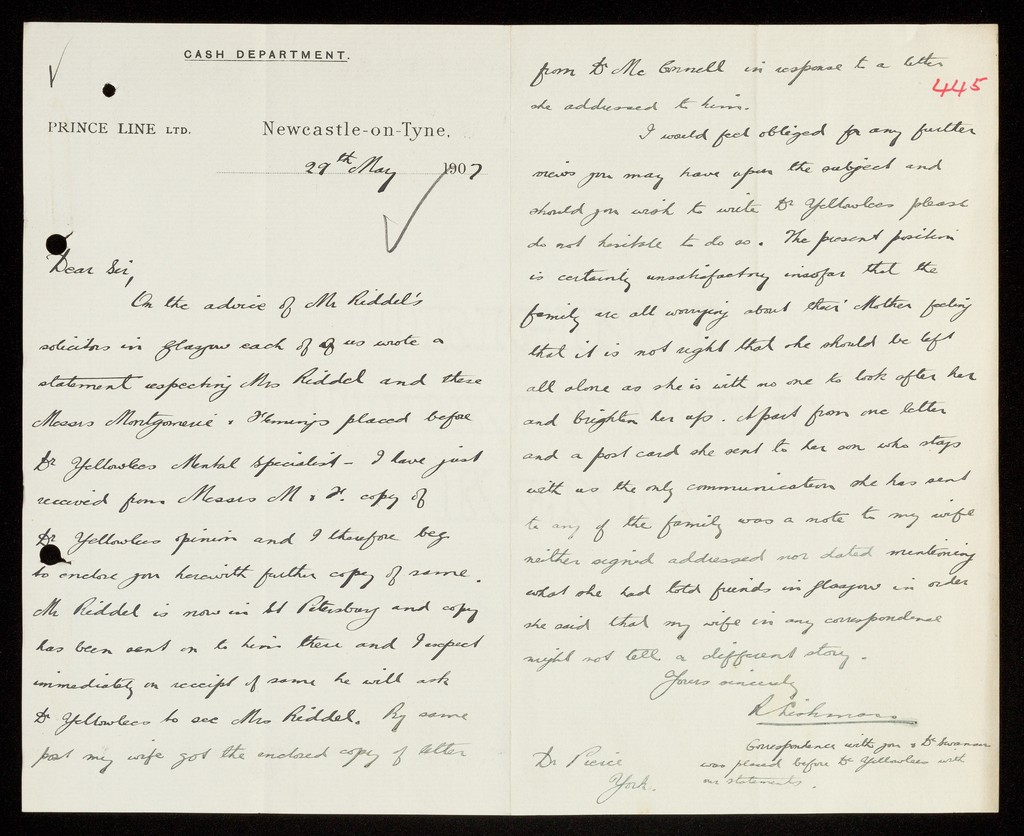 CASH DEPARTMENT.
PRINCE LINE LTD.
Newcastle-on-Tyne,
29th May 1907
Dear Sir,
On the advice of Mr Riddel's
solicitors in Glasgow each of us wrote a
statement respecting Mrs Riddel and these
Messrs Montgomerie & Flemings placed before
Dr Yellowlees Mental specialist – I have just
received from Messrs M & F. copy of
Dr Yellowlees opinion and I therefore beg
to enclose you herewith further copy of same.
Mr Riddel is now in St Petersburg and copy
has been sent on to him there and I expect
immediately on receipt of same he will ask
Dr Yellowlees to see Mrs Riddel. By same
post my wife got the enclosed copy of letter
445
from Dr Mc Connell in response to a letter
she addressed to him.
I would feel obliged for any further
views you may have upon the subject and
should you wish to write Dr Yellowlees please
do not hesitate to do so. The present position
is certainly unsatisfactory insofar that the
family are all worrying about their Mother feeling
that it is not right that she should be left
all alone as she is with no one to look after her
and brighten her up. Apart from one letter
and a post card she sent to her son who stays
with us the only communication she has sent
to any of the family was a note to my wife
neither signed addressed nor dated mentioning
what she had told friends in Glasgow in order
she said that my wife in any correspondence
might not tell a different story.
Yours sincerely
R Leishman
Correspondence with you & Dr Swanson
was placed before Dr Yellowlees with
our statements.
Dr Pierce
York.